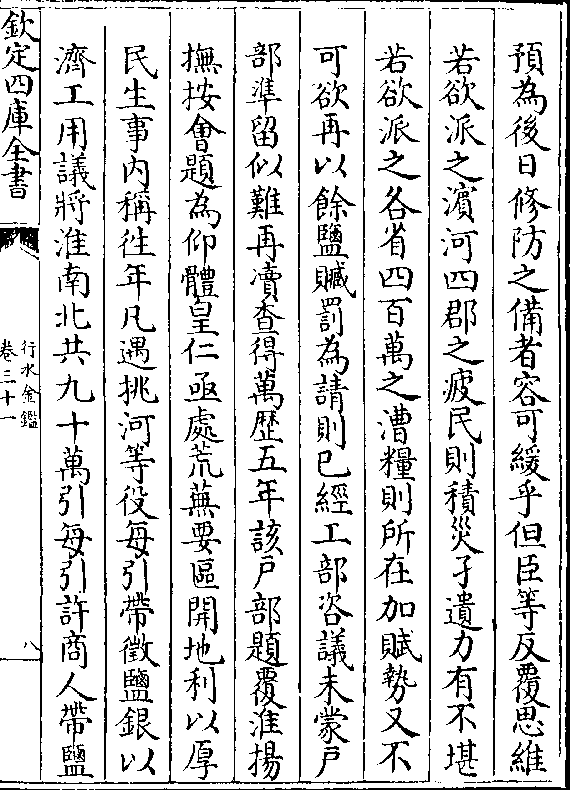 預為後日修防之備者容可緩乎但臣等反覆思維
若欲派之濵河四郡之疲民則積災孑遺力有不堪
若欲派之各省四百萬之漕糧則所在加賦勢又不
可欲再以餘鹽贓罰為請則已經工部咨議未蒙戸
部準留似難再凟查得萬歴五年該戸部題覆淮揚
撫按會題為仰體皇仁亟處荒蕪要區開地利以厚
民生事内稱徃年凡遇挑河等役每引帶徵鹽銀以
濟工用議將淮南北共九十萬引每引許商人帶鹽
欽定四庫全書
行水金鑑
卷三十一
八